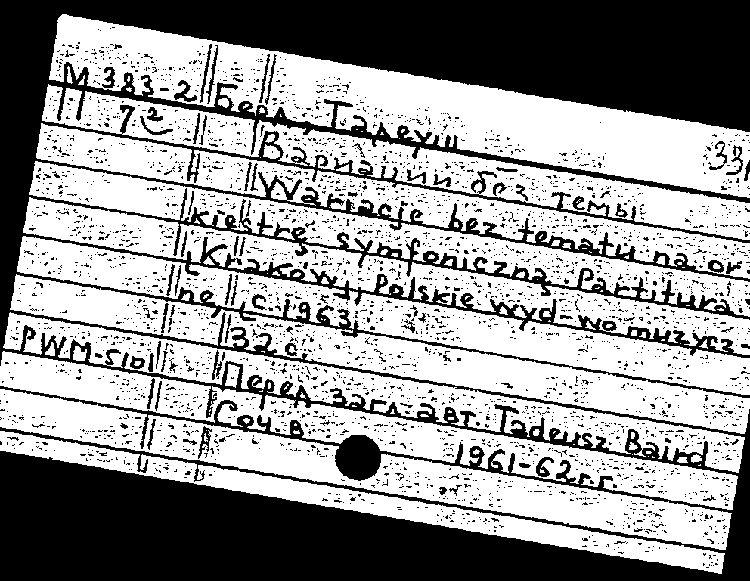 М 383-2
7²
Берд, Тадеуш
33
Вариации без темы
Wariacje bez tematu na or
kiestrę symfoniczną. Partitura.
[Kraków], Polskie wyd-wo muzycz-
ne, [c.1963].
32 с.
PWM-5101
Перед загл. авт.: Tadeusz Baird
Соч. в 1961-62 г.г.